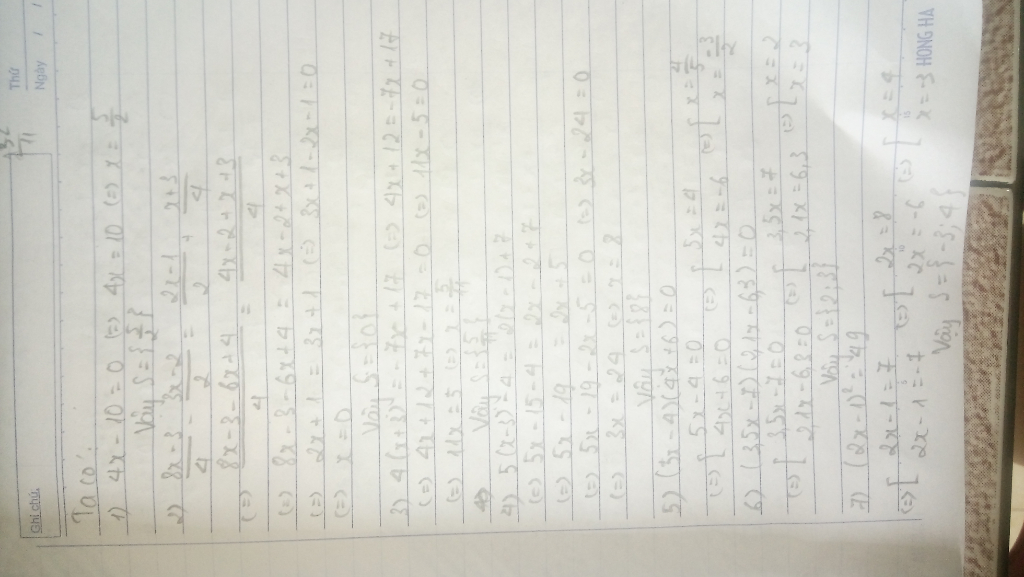 Thứ
Ngày
Ghi chú:
Ta có:
1) 4x - 10 = 0 (=) 4x = 10 (=) x = 5/2
Vậy S = {5/2}
2) 8x-3/4 - 3x-2/2 = 2x-1/2 + x+3/4
(=) 8x-3-6x+4/4 = 4x-2+x+3/4
(=) 8x-3-6x+4 = 4x-2+x+3
(=) 2x+1 = 3x+1 (=) 3x+1-2x-1=0
(=) x=0
Vậy S={0}
3) 4(x+3) = -7x+17 (=) 4x+12=-7x+17
(=) 4x+12+7x-17=0 (=) 11x-5=0
(=) 11x=5 (=) x=5/11
Vậy S={5/11}
4) 5(x-3)-4=2(x-1)+7
(=) 5x-15-4=2x-2+7
(=) 5x-19 = 2x+5
(=) 5x-19-2x-5=0 (=) 3x-24=0
(=) 3x=24 (=) x=8
Vậy S={8}
5) (5x-4)(4x+6)=0
(=) [ 5x-4=0 (=) [ 5x=4 (=) [ x=4/5
4x+6=0 4x=-6 x=-3/2
6) (3,5x-7)(2,1x-6,3)=0
(=) [ 3,5x-7=0 (=) [ 3,5x=7 (=) [ x=2
2,1x-6,3=0 2,1x=6,3 x=3
Vậy S={2;3}
7) (2x-1)²=49
(=) [ 2x-1=7 (=) [ 2x=8 (=) [ x=4
2x-1=-7 2x=-6 x=-3
Vậy S={-3;4}
HONG HA